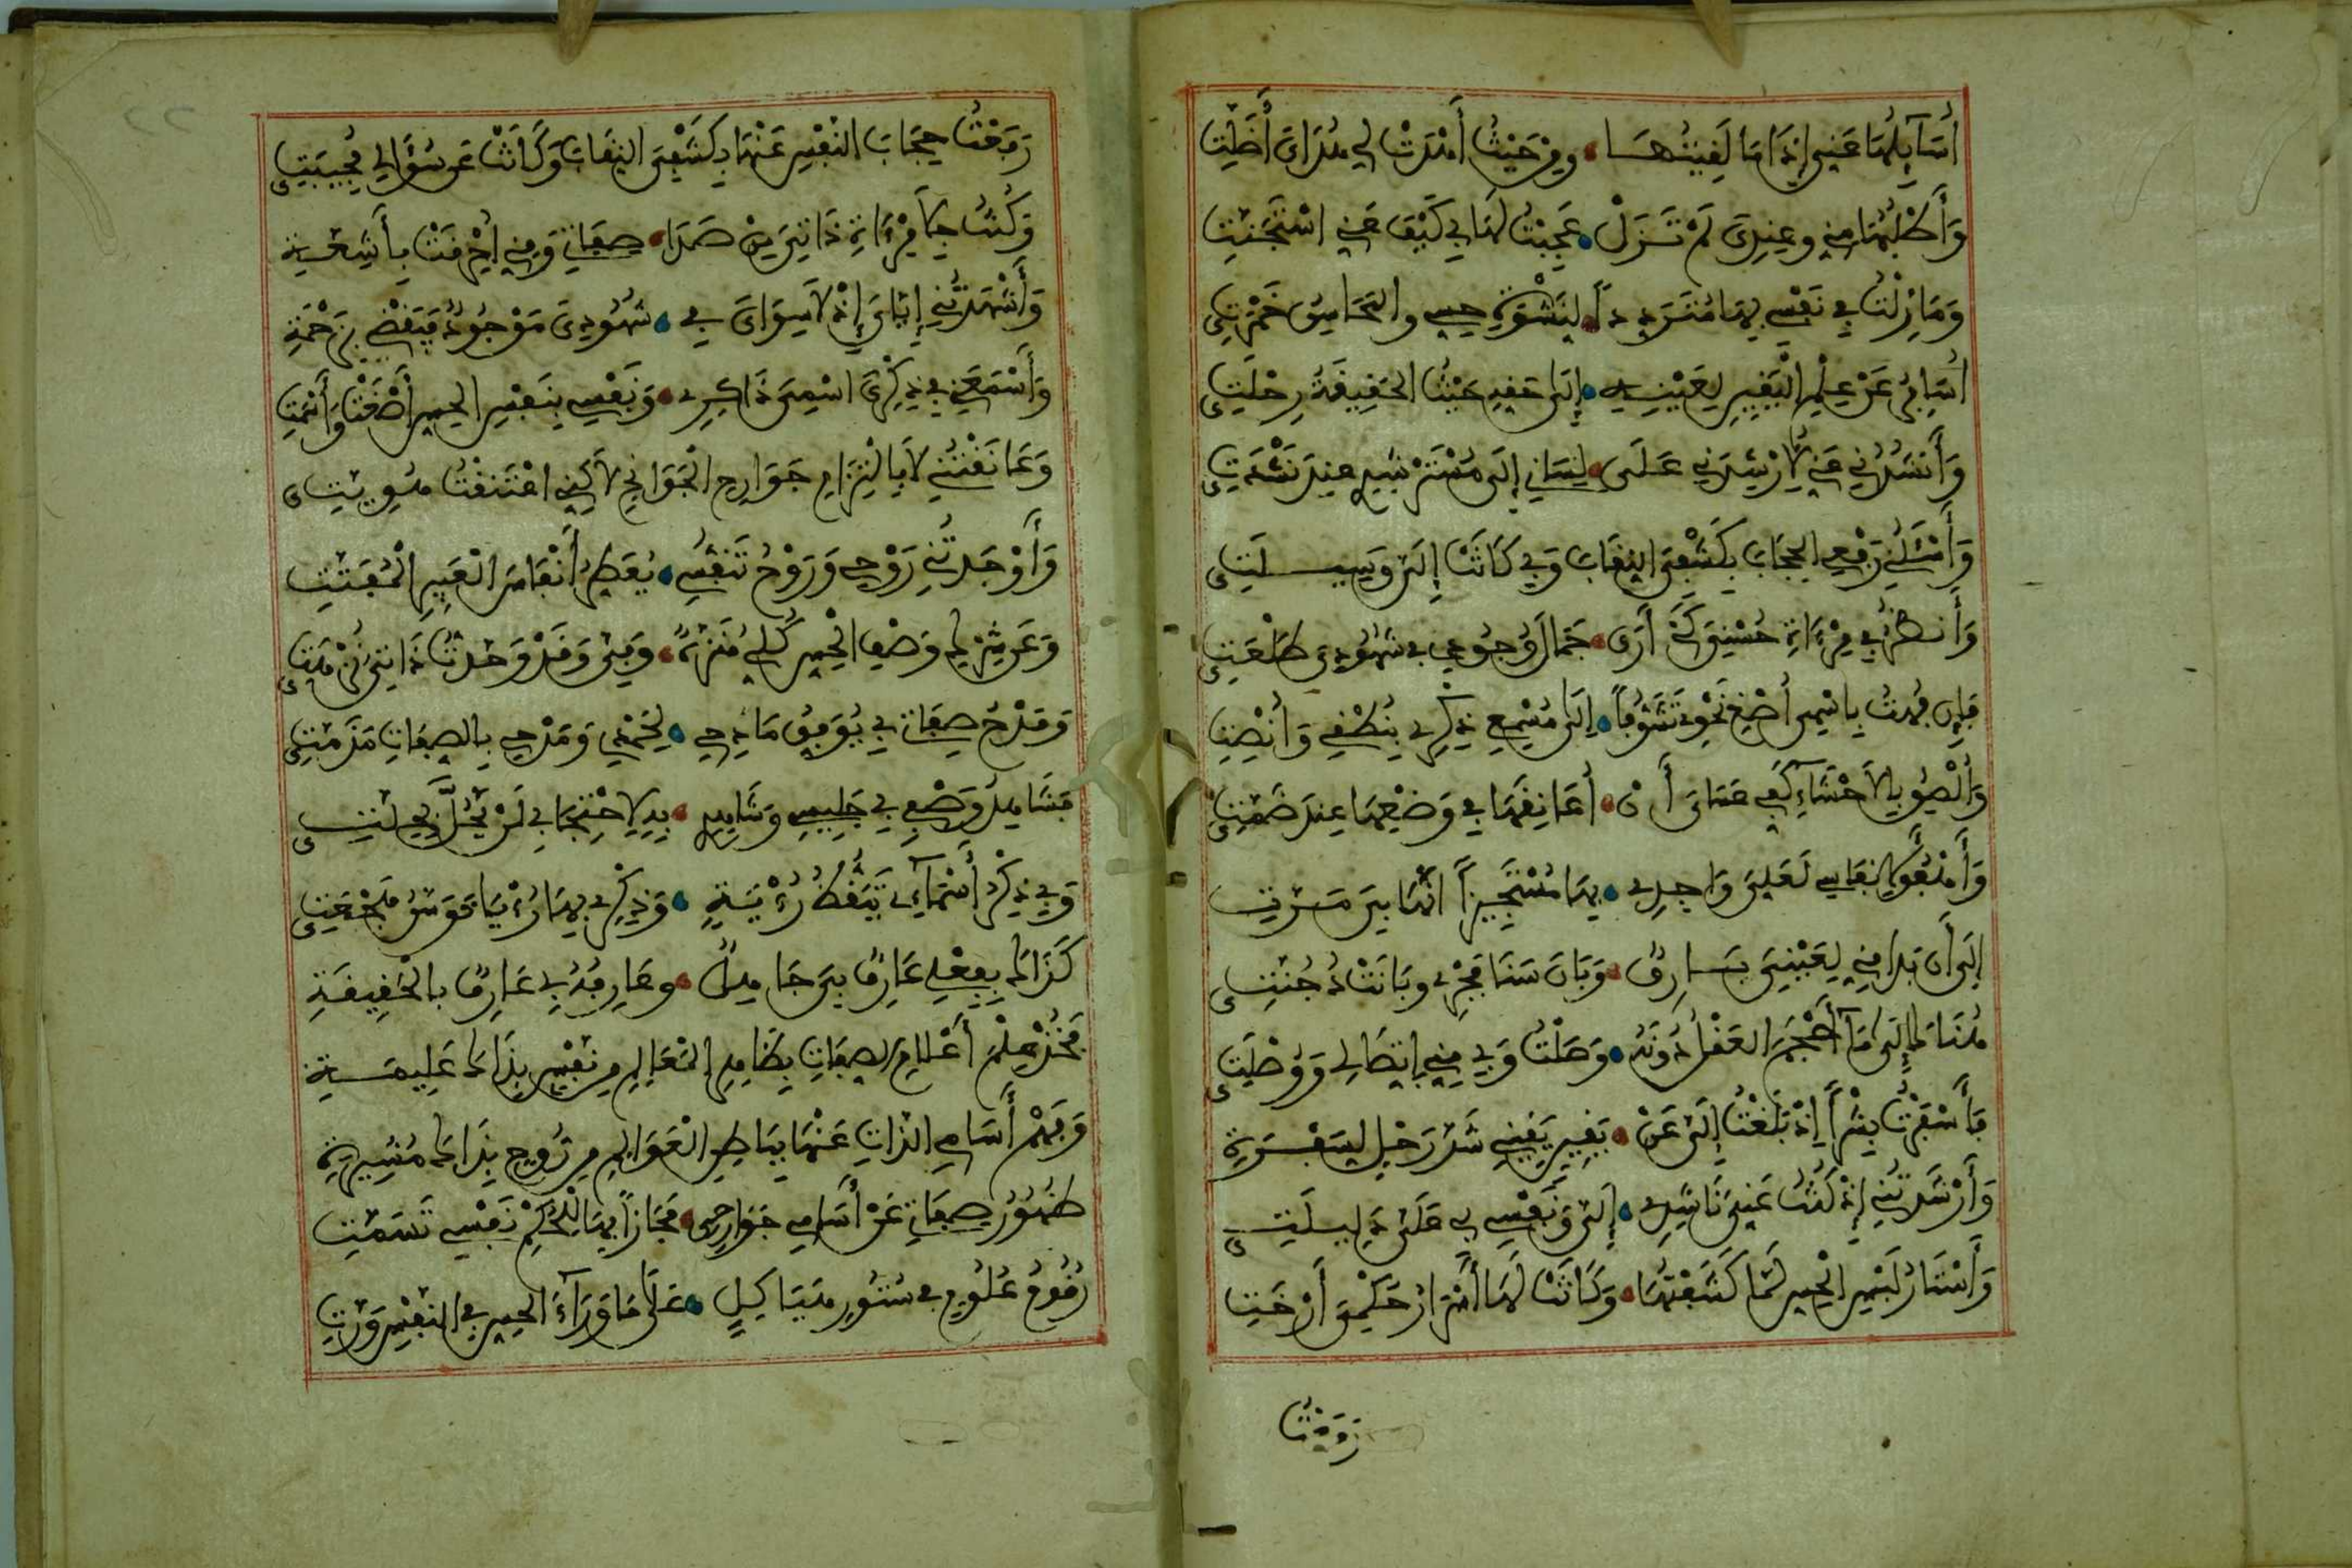 أُسَائِلُهَا عَنِّي إِذَا مَا لَقِيتُهَا وَمِنْ حَيْثُ أَهْدَتْ لِي هُدَايَ أَضَلَّتِ
وَأَطْلُبُهَا مِنِّي وَعِنْدِيَ لَمْ تَزَلْ عَجِبْتُ لَهَا بِي كَيْفَ عَنِّي اسْتَجَنَّتِ
وَمَا زِلْتُ فِي نَفْسِي بِهَا مُتَرَدِّداً لِنَشْوَةِ حِسِّي وَالمَحَاسِنُ خَمْرَتِي
أُسَافِرُ عَنْ عِلْمِ الْيَقِينِ لِعَيْنِهِ إِلَى حَقِّهِ حَيْثُ الحَقِيقَةُ رِحْلَتِي
وَأَنْشُدُنِي عَنِّي لِأُرْشِدَنِي عَلَى لِسَانِي إِلَى مُسْتَرْشِدِي عِنْدَ نَشْدَتِي
وَأَسْئَلُنِي رَفْعِي الحِجَابَ بِكَشْفِيَ النِّقَابَ وَبِي كَانَتْ إِلَيَّ وَسِيلَتِي
وَأَنْظُرُ فِي مِرْءَاةِ حُسْنِيَ كَيْ أَرَى جَمَالَ وُجُودِي فِي شُهُودِيَ طَلْعَتِي
فَإِن فُهْتُ بِاسْمِي أُصْغِ نَحْوِي تَشَوُّقاً إِلَى مُسْمِعِي ذِكْرِي بِنُطْقِي وَأُنْصِتِ
وَأُلْصِقُ بِالأَحْشَاءِ كَفِّي عَسَايَ أَنْ أُعَانِقَهَا فِي وَضْعِهَا عِنْدَ ضَمَّتِي
وَأَهْفُو لِأَنْفَاسِي لَعَلِّيَ وَاجِدِي بِهَا مُسْتَجِيزاً أَنَّهَا بِيَ مَرَّتِ
إِلَى أَن بَدَا مِنِّي لِعَيْنِيَ بَارِقٌ وَبَانَ سَنَا فَجْرِي وَبَانَتْ دُجُنَّتِي
هُنَاكَ إِلَى مَا أَحْجَمَ العَقْلُ دُونَهُ وَصَلْتُ وَبِي مِنِّي اتِّصَالِي وَوُصْلَتِي
فَأَسْفَرْتُ بِشْراً إِذْ بَلَغْتُ إِلَيَّ عَنْ يَقِينٍ يَقِينِي شَدَّ رَحْلٍ لِسَفْرَتِي
وَأَرْشَدْتُنِي إِذْ كُنْتُ عَنِّيَ نَاشِدِي إِلَيَّ وَنَفْسِي بِي عَلَيَّ دَلِيلَتِي
وَأَسْتَارُ لَبْسِ الحِسِّ لَمَّا كَشَفْتُهَا وَكَانَتْ لَهَا أَسْرَارُ حُكْمِيَ أَرْخَتِ
رَفَعْتُ
رَفَعْتُ حِجَابَ النَّفْسِ عَنْهَا بِكَشْفِيَ النِّقَابَ وَكَانَتْ عَن سُؤَالِي مُجِيبَتِي
وَكُنْتُ جِلَا مِرْءَاةِ ذَاتِيَ مِنْ صَدَا صِفَاتِي وَمِنِّي أُحْدِقَتْ بِأَشِعَّةِ
وَأَشْهَدْتُنِي إِيَّايَ إِذْ لَا سِوَايَ فِي شُهُودِيَ مَوْجُودٌ فَيَقْضِي بِزَحْمَةِ
وَأَسْمَعُنِي فِي ذِكْرِيَ اسْمِيَ ذَاكِرِي وَنَفْسِي بِنَفْيِ الحِسِّ أَصْغَتْ وَأَسْمَتِ
وَعَانَقْتُنِي لَا بِالْتِزَامِ جَوَارِحِي الْجَوَانِحَ لَكِنِّي اعْتَنَقْتُ هُوِيَّتِي
وَأَوْجَدْتُنِي رَوْحِي وَرَوْحُ تَنَفُّسِي يُعَطِّرُ أَنْفَاسَ الْعَبِيرِ الْمُفَتَّتِ
وَعَن شِرْكِ وَصْفِ الْحِسِّ كُلِّي مُنَزَّهٌ وَفِيَّ وَقَدْ وَحَّدْتُ ذَاتِيَ نُزْهَتِي
وَمَدْحُ صِفَاتِي بِي يُوَفِّقُ مَادِحِي لِحَمْدِي وَمَدْحِي بِالصِّفَاتِ مَذَمَّتِي
فَشَاهِدُ وَصْفِي بِي جَلِيسِي وَشَاهِدِي بِهِ لِاحْتِجَابِي لَنْ يَحُلَّ بِحِلَّتِي
وَبِي ذِكْرُ أَسْمَاءِي تَيَقُّظُ رُؤْيَةٍ وَذِكْرِي بِهَا رُؤْيَا تَوَسُّنِ هَجْعَتِي
كَذَاكَ بِفِعْلِي عَارِفٌ بِيَ جَاهِلٌ وَعَارِفُهُ بِي عَارِفٌ بِالْحَقِيقَةِ
فَخُذْ عِلْمَ أَعْلَامِ الصِّفَاتِ بِظَاهِرِ الْمَعَالِمِ مِن نَفْسٍ بِذَاكَ عَلِيمَةِ
وَفَهْمُ أَسَامِي الذَّاتِ عَنْهَا بِبَاطِنِ الْعَوَالِمِ مِن رُوحٍ بِذَاكَ مُشِيرَةِ
ظُهُورُ صِفَاتِي عَنْ أَسَامِي جَوَارِحِي مَجَازاً بِهَا لِلْحُكْمِ نَفْسِي تَسَمَّتِ
رُقُومُ عُلُومٍ فِي سُتُورِ هَيَاكِلٍ عَلَى مَا وَرَاءَ الحِسِّ فِي النَّفْسِ وَرَّتِ